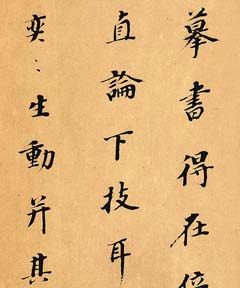 摹書得在
直論下技耳
奕〻生動并其